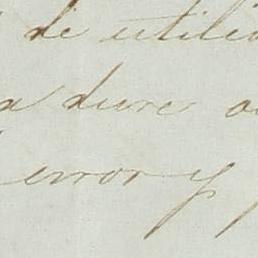 de utili
a dure a
error y